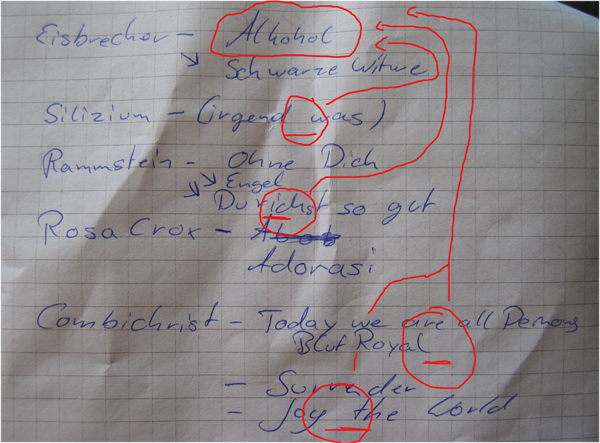 Eisbrecher - Alkohol
Schwarze Witwe
Silizium - (irgend was)
Rammstein - Ohne Dich
Engel
Du richst so gut
Rosa Crox -
Adorasi
Combichrist - Today we are all Demons
Blut Royal
- Surrender
- Joy the World